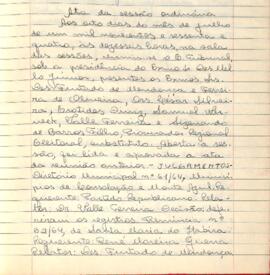 Ata da sessão ordinária
Aos oito dias do mês de julho
de um mil novecentos e sessenta e
quatro, às dezesseis horas, na sala
das sessões, reuniu-se o E. Tribunal,
sob a presidência do Exmo. Sr. Des. Mel
lo Júnior, presentes os Exmos. Srs.
Des. Furtado de Mendonça e Ferrei
ra de Oliveira, Drs. César Silvei
ra, Samuel Wer
neck, Valle Ferreira e
de Barros Filho, Procurador Regional
Eleitoral, substituto. Aberta a ses
são, foi lida e aprovada a ata
da reunião anterior. - JULGAMENTOS -
Diretório Municipal nº 61/64, Municí
pios de Consolação e Monte Azul. Re
querente: Partido Republicano. Rela
tor: Dr. Valle Ferreira. Decisão: defe
riram os registros. Denúncia nº
02/64, de Santa Maria do Itabira.
Requerente: René Moreira Guerra
Relator: Des. Furtado de Mendonça